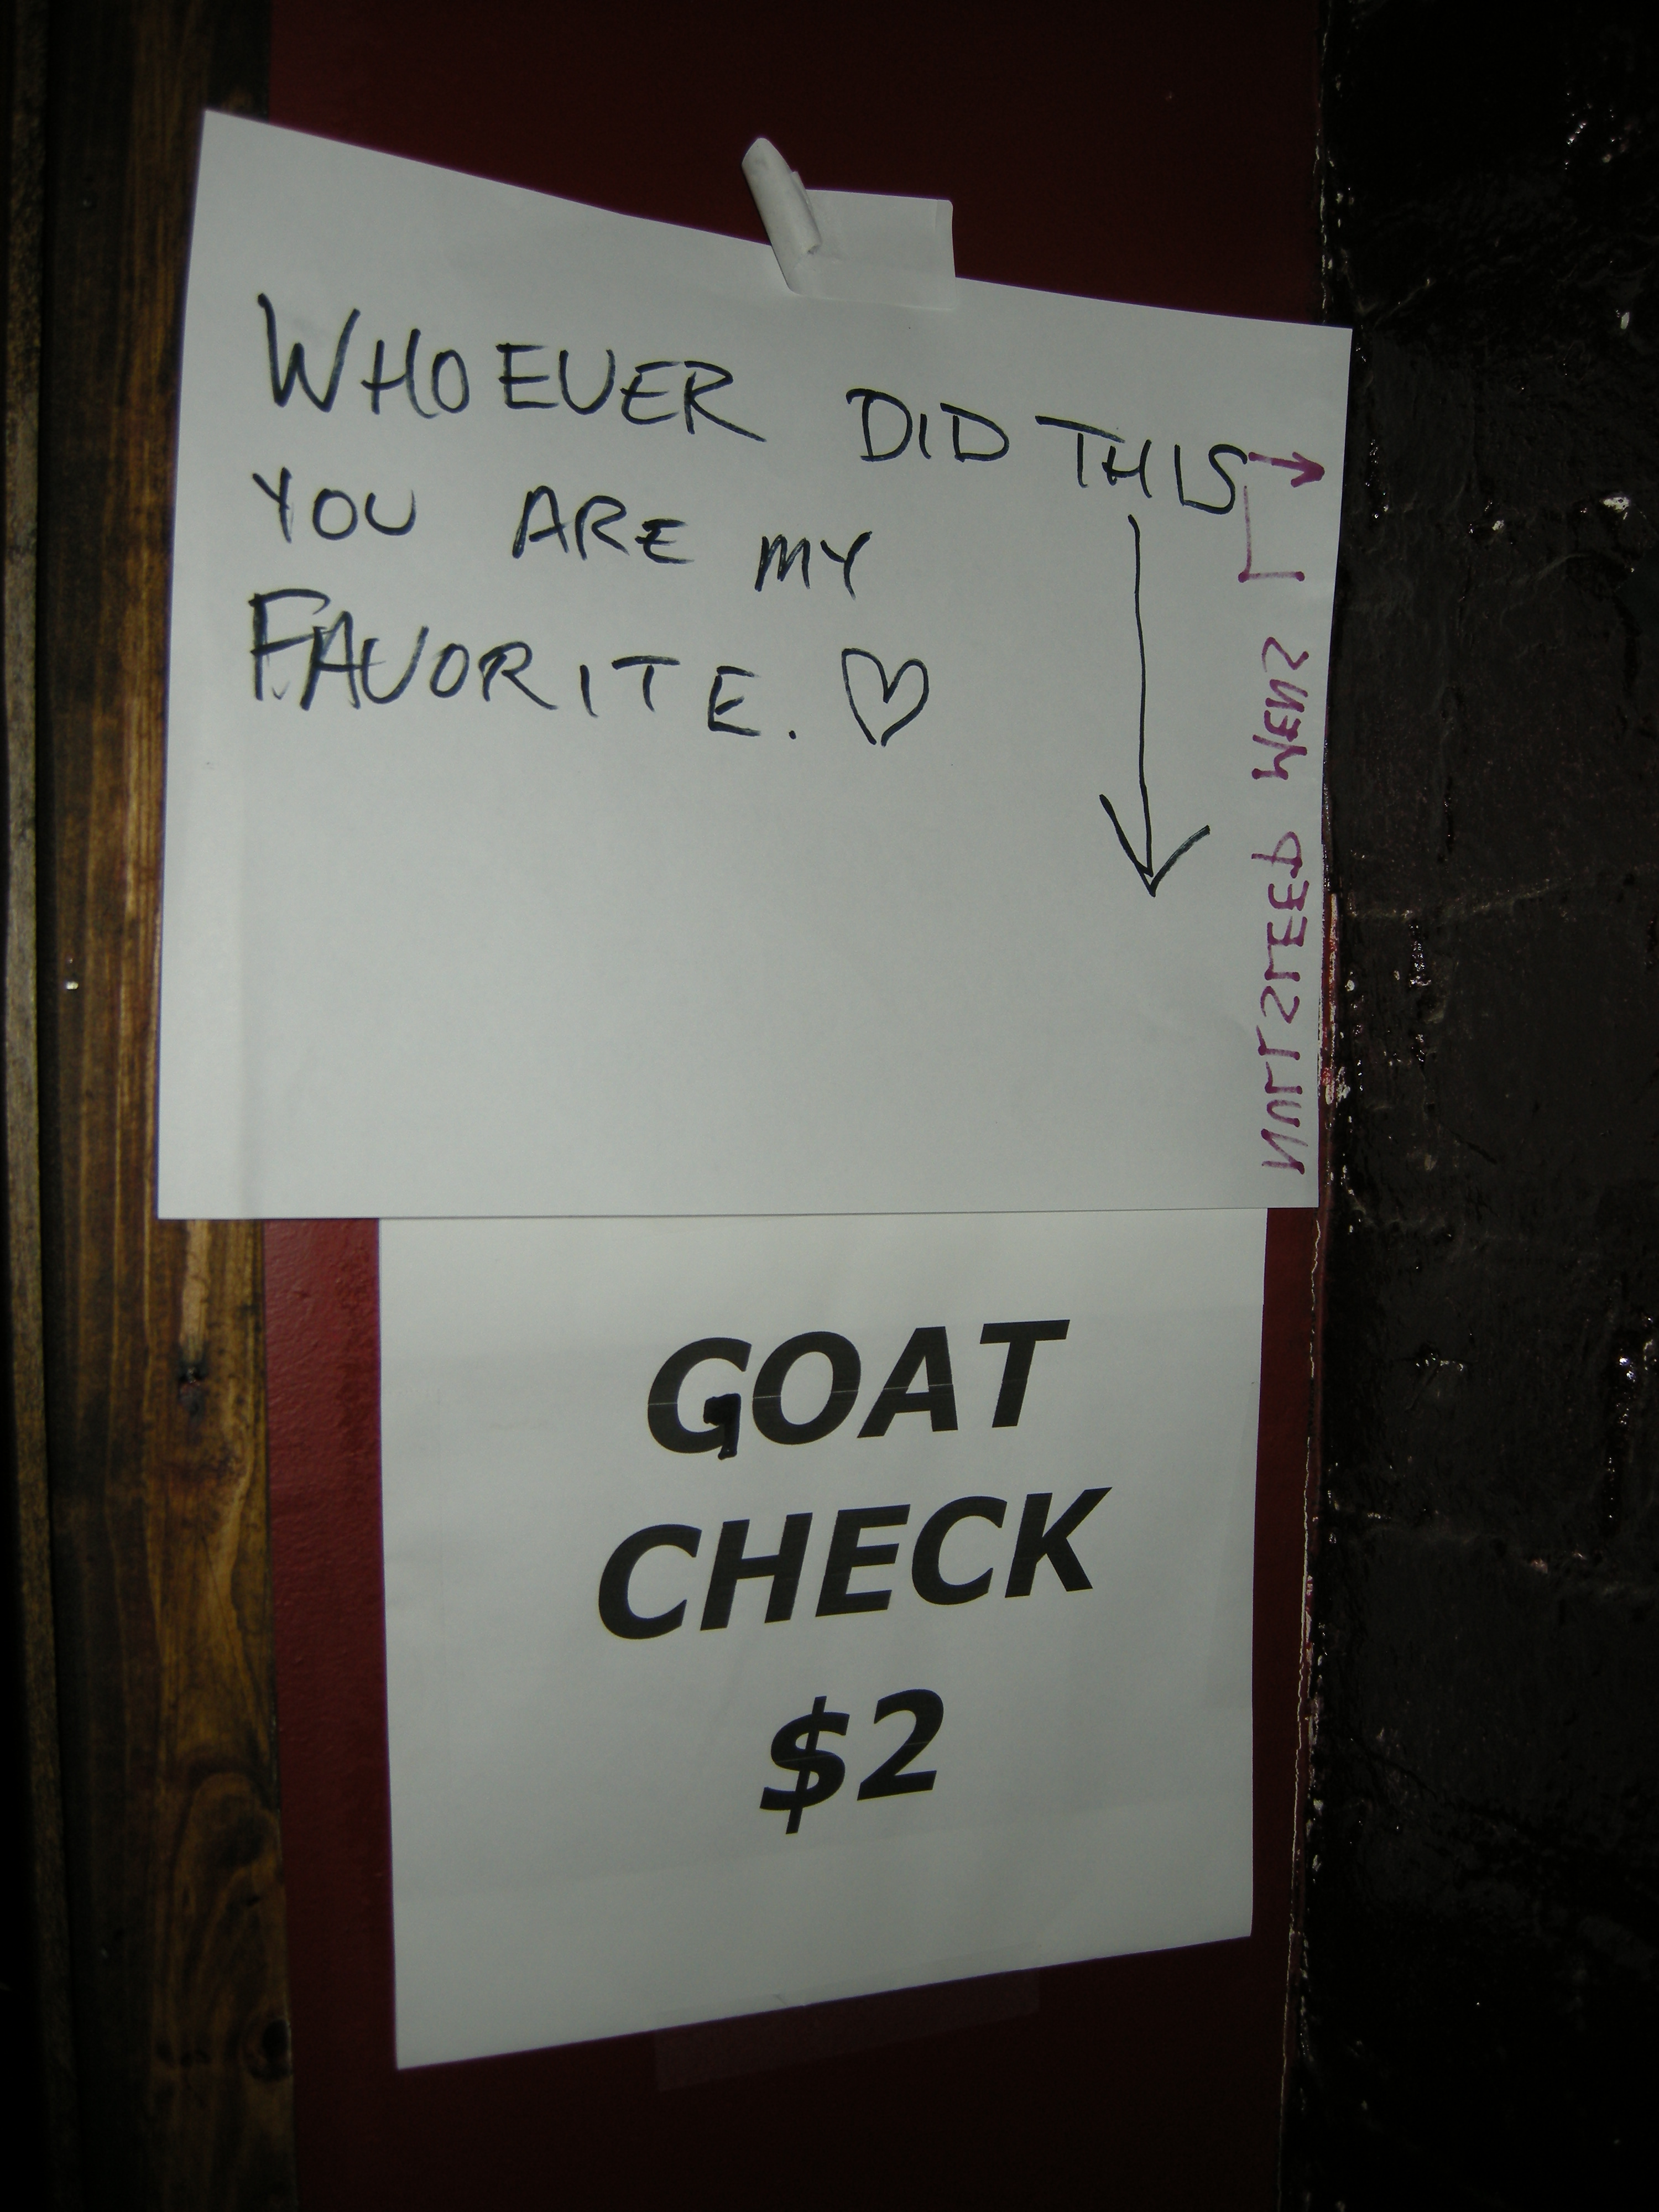 WHOEVER DID THIS
YOU ARE MY
FAVORITE. ♡
NULLSLEEP MENS L →
GOAT
CHECK
$2